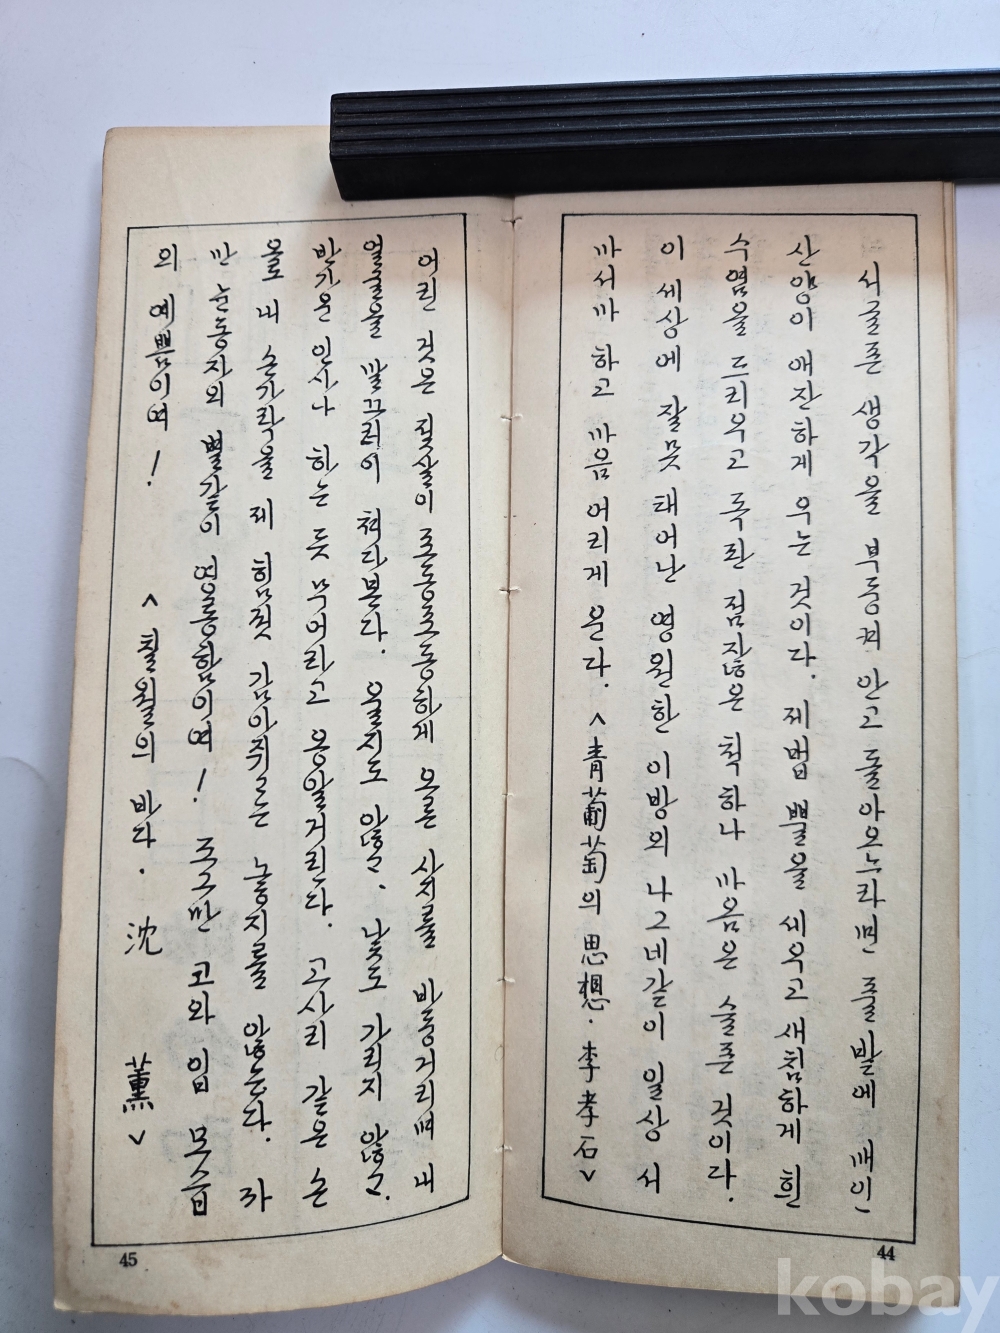 서글픈 생각을 부둥켜 안고 돌아오느라면 풀밭에 매인
산양이 애잔하게 우는 것이다. 제법 뿔을 세우고 새침하게 흰
수염을 드리우고 독판 점잖은 척하나 마음은 슬픈 것이다.
이 세상에 잘못 태어난 영원한 이방의 나그네같이 일상 서
까서까 하고 마음 어리게 운다. <靑葡萄의 思想 · 李孝石>
44
어린 것은 젖살이 포동포동하게 오른 사지를 바둥거리며 내
얼굴을 말끄러미 쳐다본다. 울지도 않고, 낯도 가리지 않고,
반가운 인사나 하는 듯 무어라고 옹알거린다. 고사리 같은 손
을 내 손가락을 제 힘껏 감아쥐고는 놓지를 않는다. 까
만 눈동자의 별같이 영롱함이여! 조그만 코와 입 모습
의 예쁨이여!
<칠월의 바다 · 沈 薰>
45
kobay